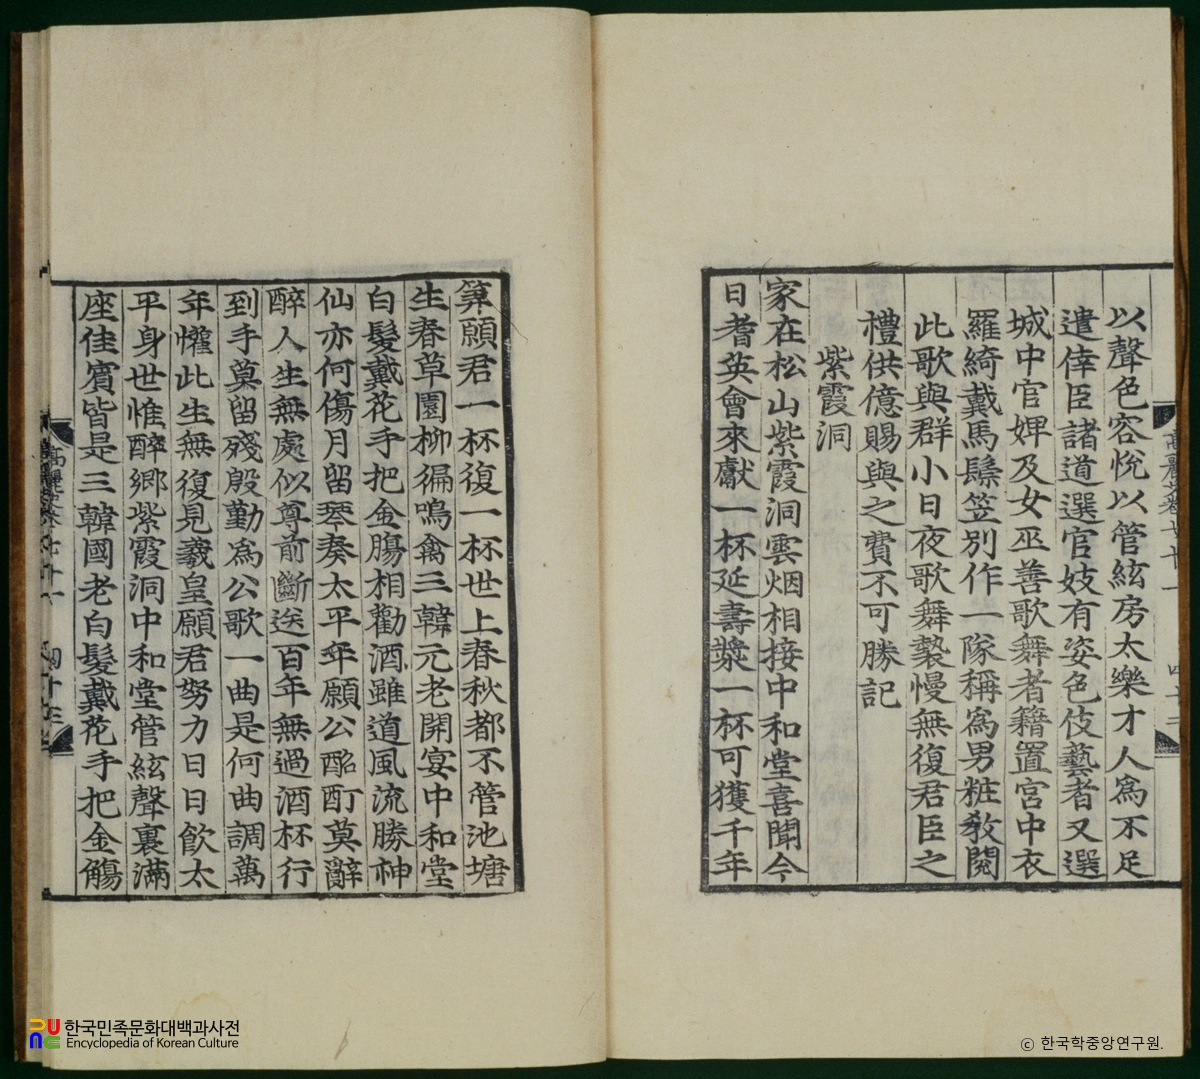 以聲色容悅以管絃房太樂才人爲不足
遣倖臣諸道選官妓有姿色伎藝者又選
城中官婢及女巫善歌舞者籍置宮中衣
羅綺戴馬鬃笠別作一隊稱爲男粧敎閱
此歌與群小日夜歌舞褻慢無復君臣之
禮供億賜與之費不可勝記
紫霞洞
家在松山紫霞洞雲烟相接中和堂喜聞今
日耆英會來獻一杯延壽漿一杯可獲千年
算願君一杯復一杯世上春秋都不管池塘
生春草園柳徧鳴禽三韓元老開宴中和堂
白髮戴花手把金觴相勸酒雖道風流勝神
仙亦何傷月留琴奏太平年願公酩酊莫辭
醉人生無處似尊前斷送百年無過酒杯行
到手莫留殘殷勤爲公歌一曲是何曲調萬
年懽此生無復見羲皇願君努力日日飮太
平身世惟醉鄕紫霞洞中和堂管絃聲裏滿
座佳賓皆是三韓國老白髮戴花手把金觴
한국민족문화대백과사전
Encyclopedia of Korean Culture
ⓒ 한국학중앙연구원.